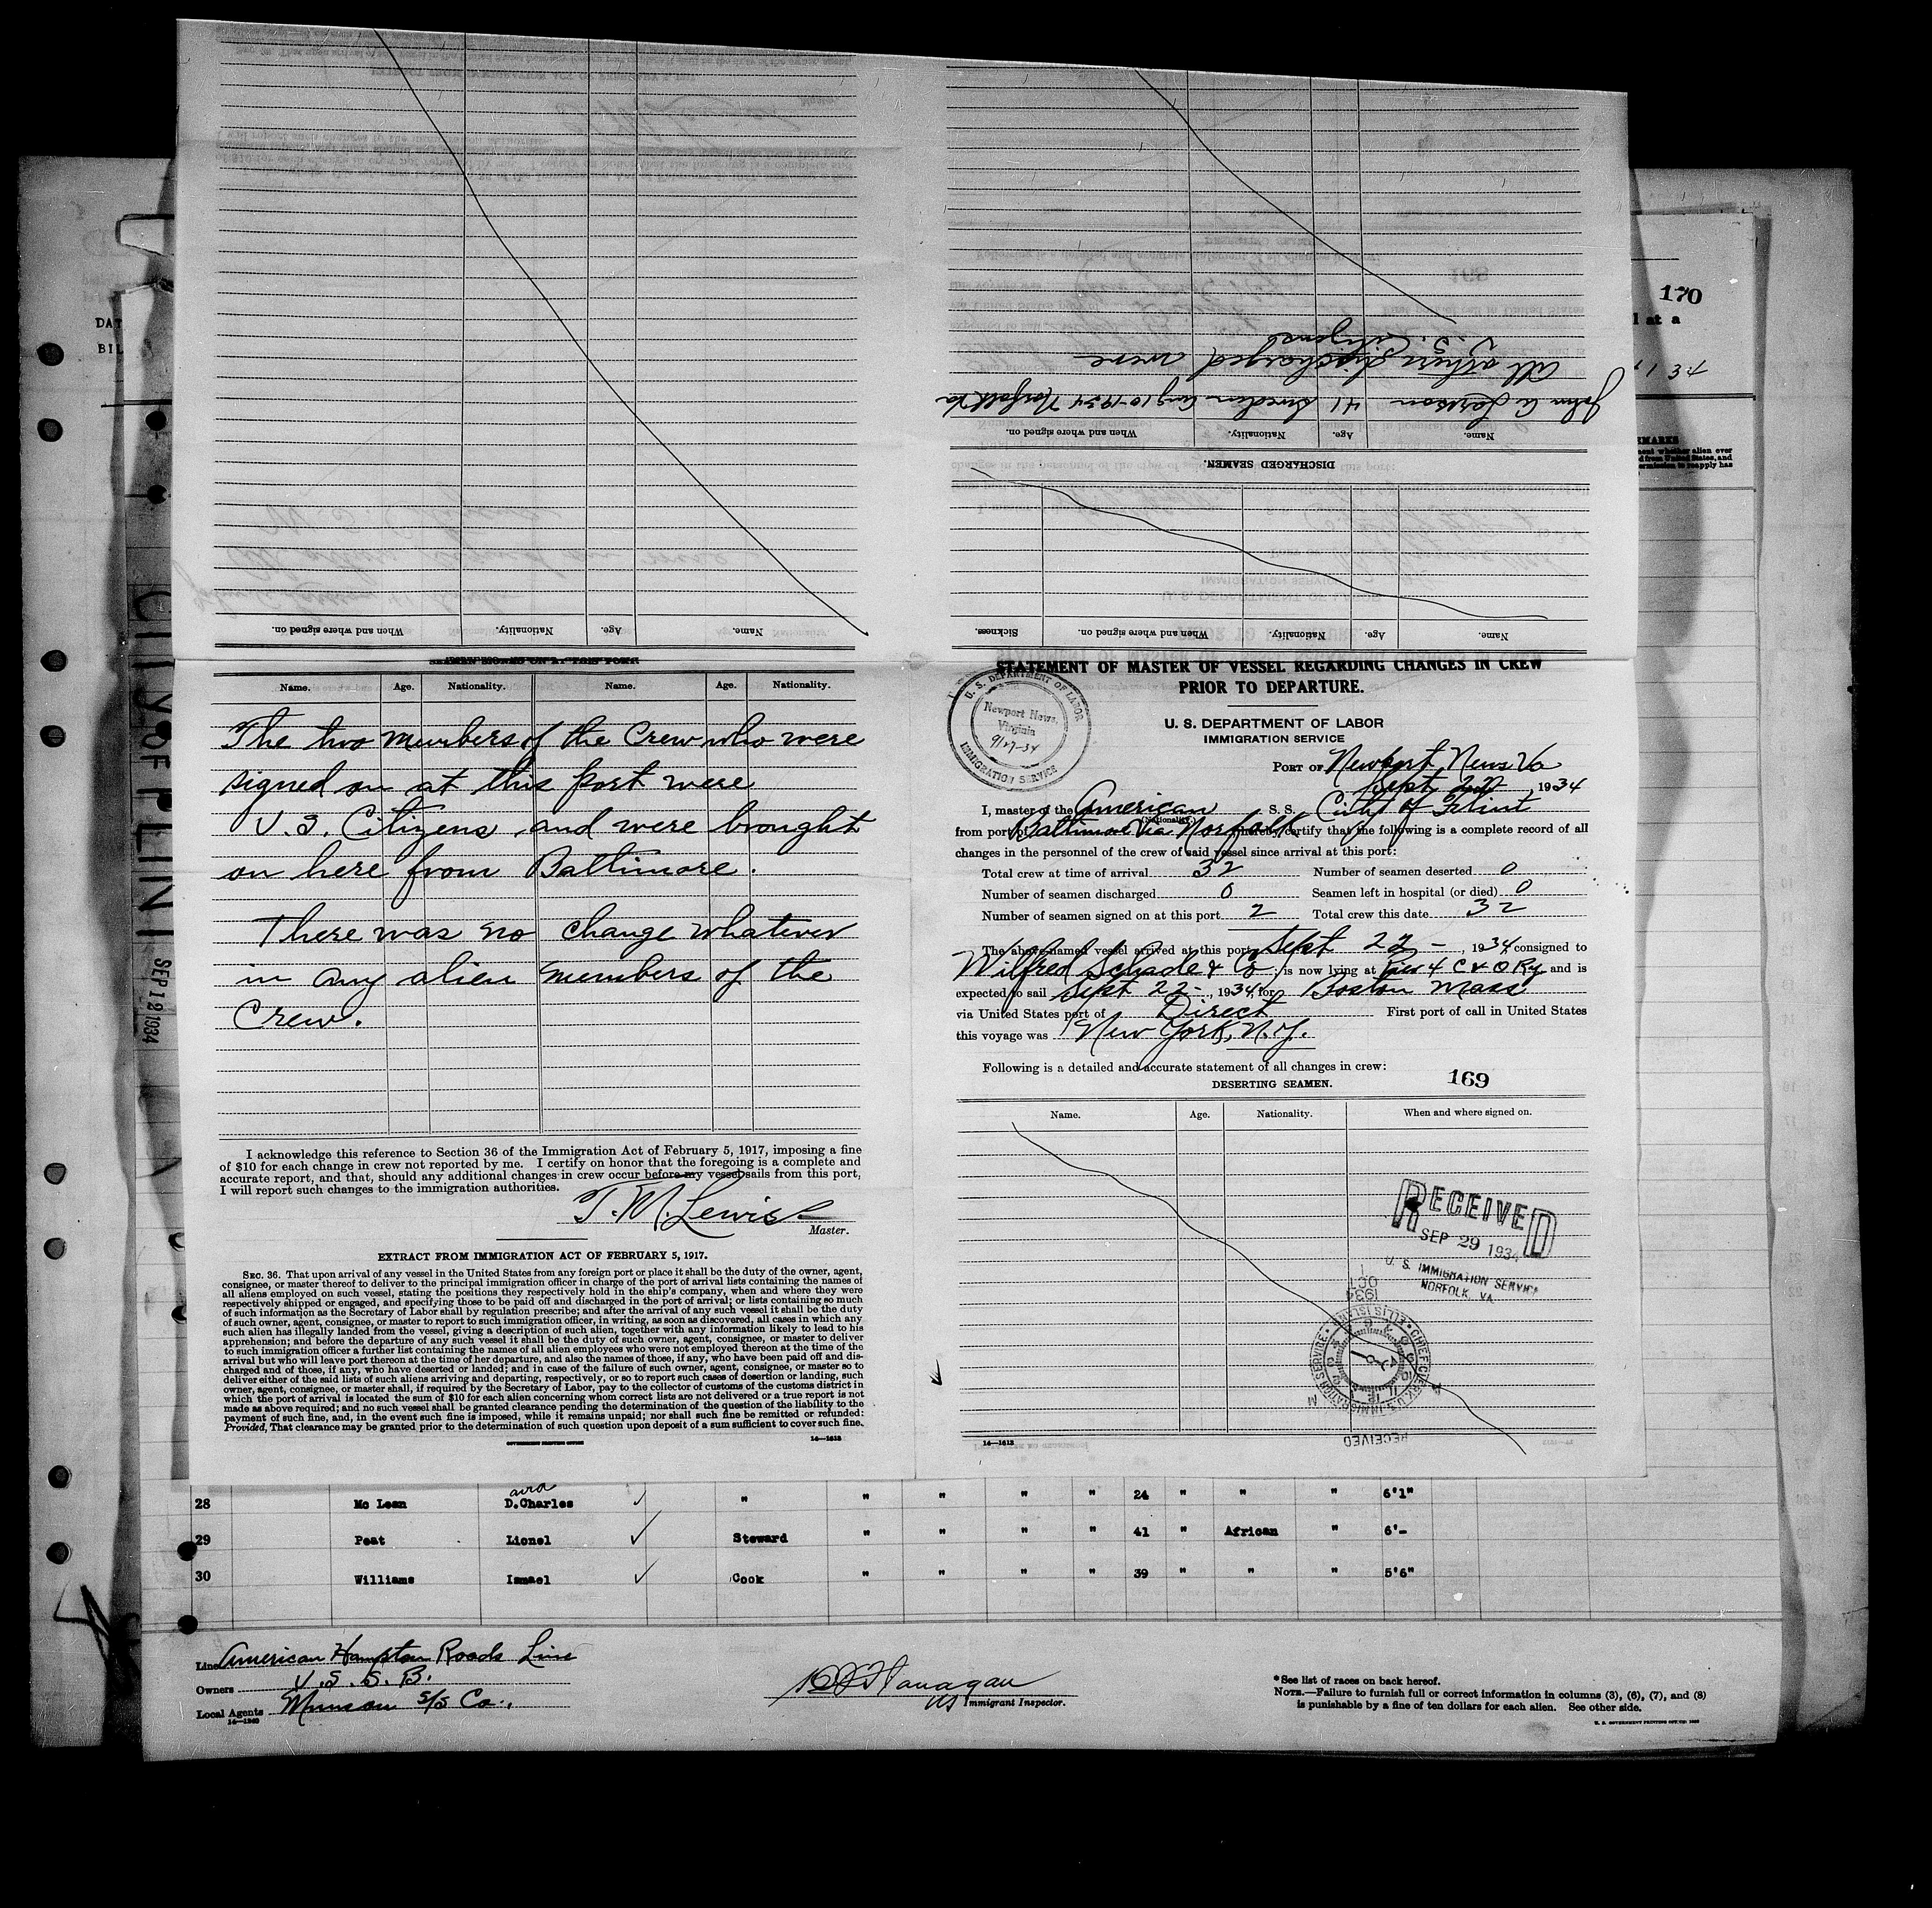 170
l at a
DAT
BIL
CITY OF FLINT
SEP 12 1934
Name.
Age.
Nationality.
When and where signed on.
DISCHARGED SEAMEN.
Name. Age. Nationality. When and where signed on.
John A Larsson 41 Sweden Aug 10-1934 Norfolk Va
All others discharged were
U.S. Citizens
Name. Age. Nationality. When and where signed on. Sickness.
SEAMEN SIGNED ON AT THIS PORT.
Name. Age. Nationality. Name. Age. Nationality.
The two members of the Crew who were
signed on at this port were
U.S. Citizens and were brought
on here from Baltimore.
There was no change whatever
in any alien members of the
Crew.
I acknowledge this reference to Section 36 of the Immigration Act of February 5, 1917, imposing a fine
of $10 for each change in crew not reported by me. I certify on honor that the foregoing is a complete and
accurate report, and that, should any additional changes in crew occur before my vessel sails from this port,
I will report such changes to the immigration authorities.
T. M. Lewis
Master.
EXTRACT FROM IMMIGRATION ACT OF FEBRUARY 5, 1917.
SEC. 36. That upon arrival of any vessel in the United States from any foreign port or place it shall be the duty of the owner, agent,
consignee, or master thereof to deliver to the principal immigration officer in charge of the port of arrival lists containing the names of
all aliens employed on such vessel, stating the positions they respectively hold in the ship's company, when and where they were
respectively shipped or engaged, and specifying those to be paid off and discharged in the port of arrival; or lists containing so much
of such information as the Secretary of Labor shall by regulation prescribe; and after the arrival of any such vessel it shall be the duty
of such owner, agent, consignee, or master to report to such immigration officer, in writing, as soon as discovered, all cases in which any
such alien has illegally landed from the vessel, giving a description of such alien, together with any information likely to lead to his
apprehension; and before the departure of any such vessel it shall be the duty of such owner, agent, consignee, or master to deliver
to such immigration officer a further list containing the names of all alien employees who were not employed thereon at the time of the
arrival but who will leave port thereon at the time of her departure, and also the names of those, if any, who have been paid off and dis-
charged and of those, if any, who have deserted or landed; and in case of the failure of such owner, agent, consignee, or master so to
deliver either of the said lists of such aliens arriving and departing, respectively, or so to report such cases of desertion or landing, such
owner, agent, consignee, or master shall, if required by the Secretary of Labor, pay to the collector of customs of the customs district in
which the port of arrival is located the sum of $10 for each alien concerning whom correct lists are not delivered or a true report is not
made as above required; and no such vessel shall be granted clearance pending the determination of the question of the liability to the
payment of such fine, and, in the event such fine is imposed, while it remains unpaid; nor shall such fine be remitted or refunded:
Provided, That clearance may be granted prior to the determination of such question upon deposit of a sum sufficient to cover such fine.
GOVERNMENT PRINTING OFFICE 14—1613
STATEMENT OF MASTER OF VESSEL REGARDING CHANGES IN CREW
PRIOR TO DEPARTURE.
U. S. DEPARTMENT OF LABOR
IMMIGRATION SERVICE
U. S. DEPARTMENT OF LABOR
Newport News,
Virginia
9/27-34
IMMIGRATION SERVICE
PORT OF Newport News Va
Sept 22, 1934
I, master of the American S. S. City of Flint
(Nationality.)
from port of Baltimore Via Norfolk hereby certify that the following is a complete record of all
changes in the personnel of the crew of said vessel since arrival at this port:
Total crew at time of arrival 32 Number of seamen deserted 0
Number of seamen discharged 0 Seamen left in hospital (or died) 0
Number of seamen signed on at this port 2 Total crew this date 32
The above-named vessel arrived at this port Sept 22 -, 1934, consigned to
Wilfred Schade & Co; is now lying at Pier 4 C & O Ry and is
expected to sail Sept 22 -, 1934, for Boston Mass
via United States port of Direct First port of call in United States
this voyage was New York, N.Y.
Following is a detailed and accurate statement of all changes in crew:
DESERTING SEAMEN.
169
Name. Age. Nationality. When and where signed on.
RECEIVED
SEP 29 1934
U. S. IMMIGRATION SERVICE
NORFOLK, VA.
1934
OCT
1
RECEIVED
14—1613
28 Mc Lean D.Charles " " " " " 24 " " " 6'1"
29 Peat Lionel Steward " " " " 41 " African " 6'-
30 Williams Ismael Cook " " " " 39 " " " 5'6"
Line American Hampton Roads Line
Owners U.S.S.B.
Local Agents Munson S/S Co.,
14—1240
Immigrant Inspector.
* See list of races on back hereof.
NOTE.—Failure to furnish full or correct information in columns (3), (6), (7), and (8)
is punishable by a fine of ten dollars for each alien. See other side.